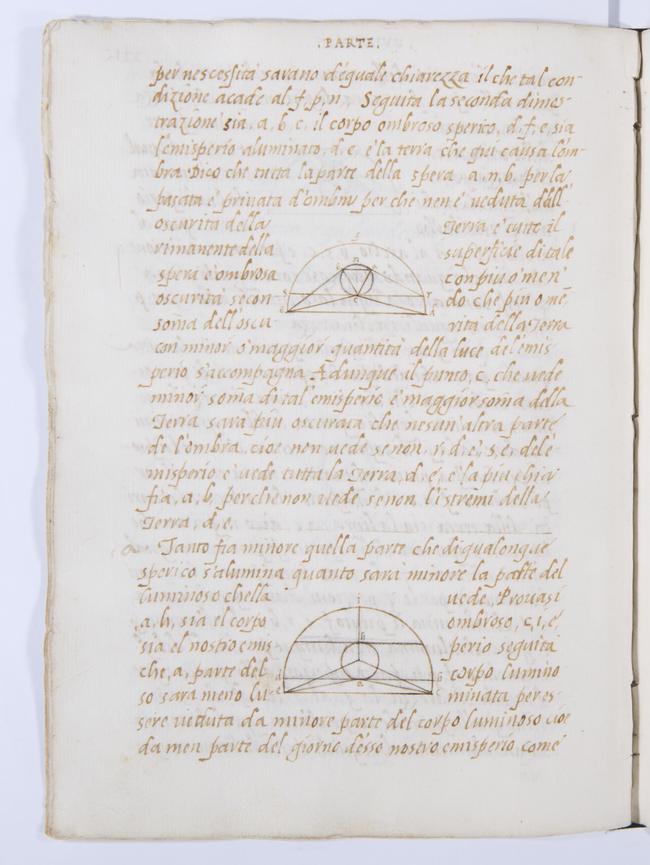 .PARTE.
per nescessità sarano d'eguale chiarezza il che tal con-
dizione acade al, f, p, n, Seguita la seconda dimos-
trazione sia, a, b, c, il corpo ombroso sperico, d, f, e, sia
l'emisperio aluminato, d, e, è la terra che qui causa l'om-
bra Dico che tutta la parte della spera, a, n, b, per la
pasata è privata d'ombra per che non è veduta dall'
oscurita della Terra e tutto il
rimanente della superficie di tale
spera è ombrosa con piu o men
oscurità secon do che piu o mē
soma dell'oscu rità della Terra
con minor o maggior quantità della luce del emis
perio s'accompagna Adunque il punto, c, che vede
minor soma di tal emisperio e maggior soma della
Terra sarà piu oscurata che nesun altra parte
de l'ombra, cioe non vede se non, r, d, e, s, e, dele
misperio e vede tutta la Terra, d, e, e la piu chia
fia, a, b, perche non vede se non l'istremi della
Terra, d, e,
Tanto fia minore quella parte che di qualonque
sperico s'alumina quanto sarà minore la parte del
luminoso chella vede, Provasi
a, b, sia el corpo ombroso, c, i, e,
sia el nostro emis perio seguita
che, a, parte del corpo lumino
so sarà meno lu minata per es-
sere veduta da minore parte del corpo luminoso cioe
da men parte del giorno desso nostro emisperio come